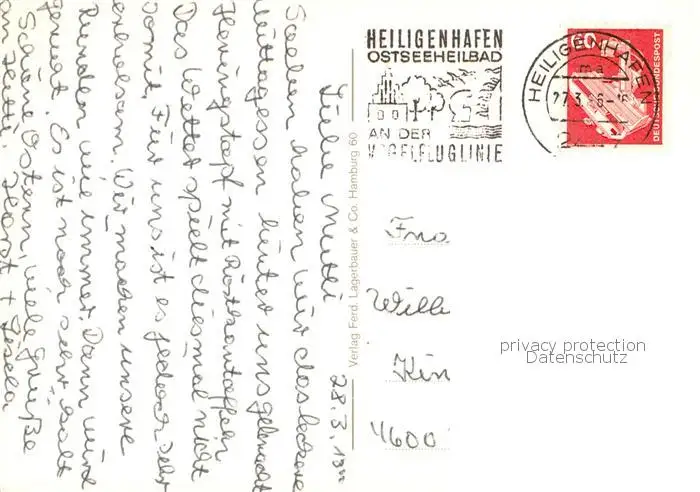 28.3.13ºº
Liebe Mutti
Soeben haben wir das leckere
Mittagessen hinter uns gebracht
Heringstopf mit Röstkartoffeln
Das Wetter spielt diesmal nicht
so mit. Für uns ist es jedoch sehr
erholsam. Wir machen unsere
Runden wie immer. Dann wird
gerudt. Es ist noch sehr kalt
Schöne Ostern, viele Grüße
an Jutti. Horst + Gisela
Verlag Ferd. Lagerbauer & Co. Hamburg 60
HEILIGENHAFEN
OSTSEEHEILBAD
AN DER
VOGELFLUGLINIE
HEILIGENHAFEN
ma
60
DEUTSCHE BUNDESPOST
Wille
Kin
4600
privacy protection
Datenschutz